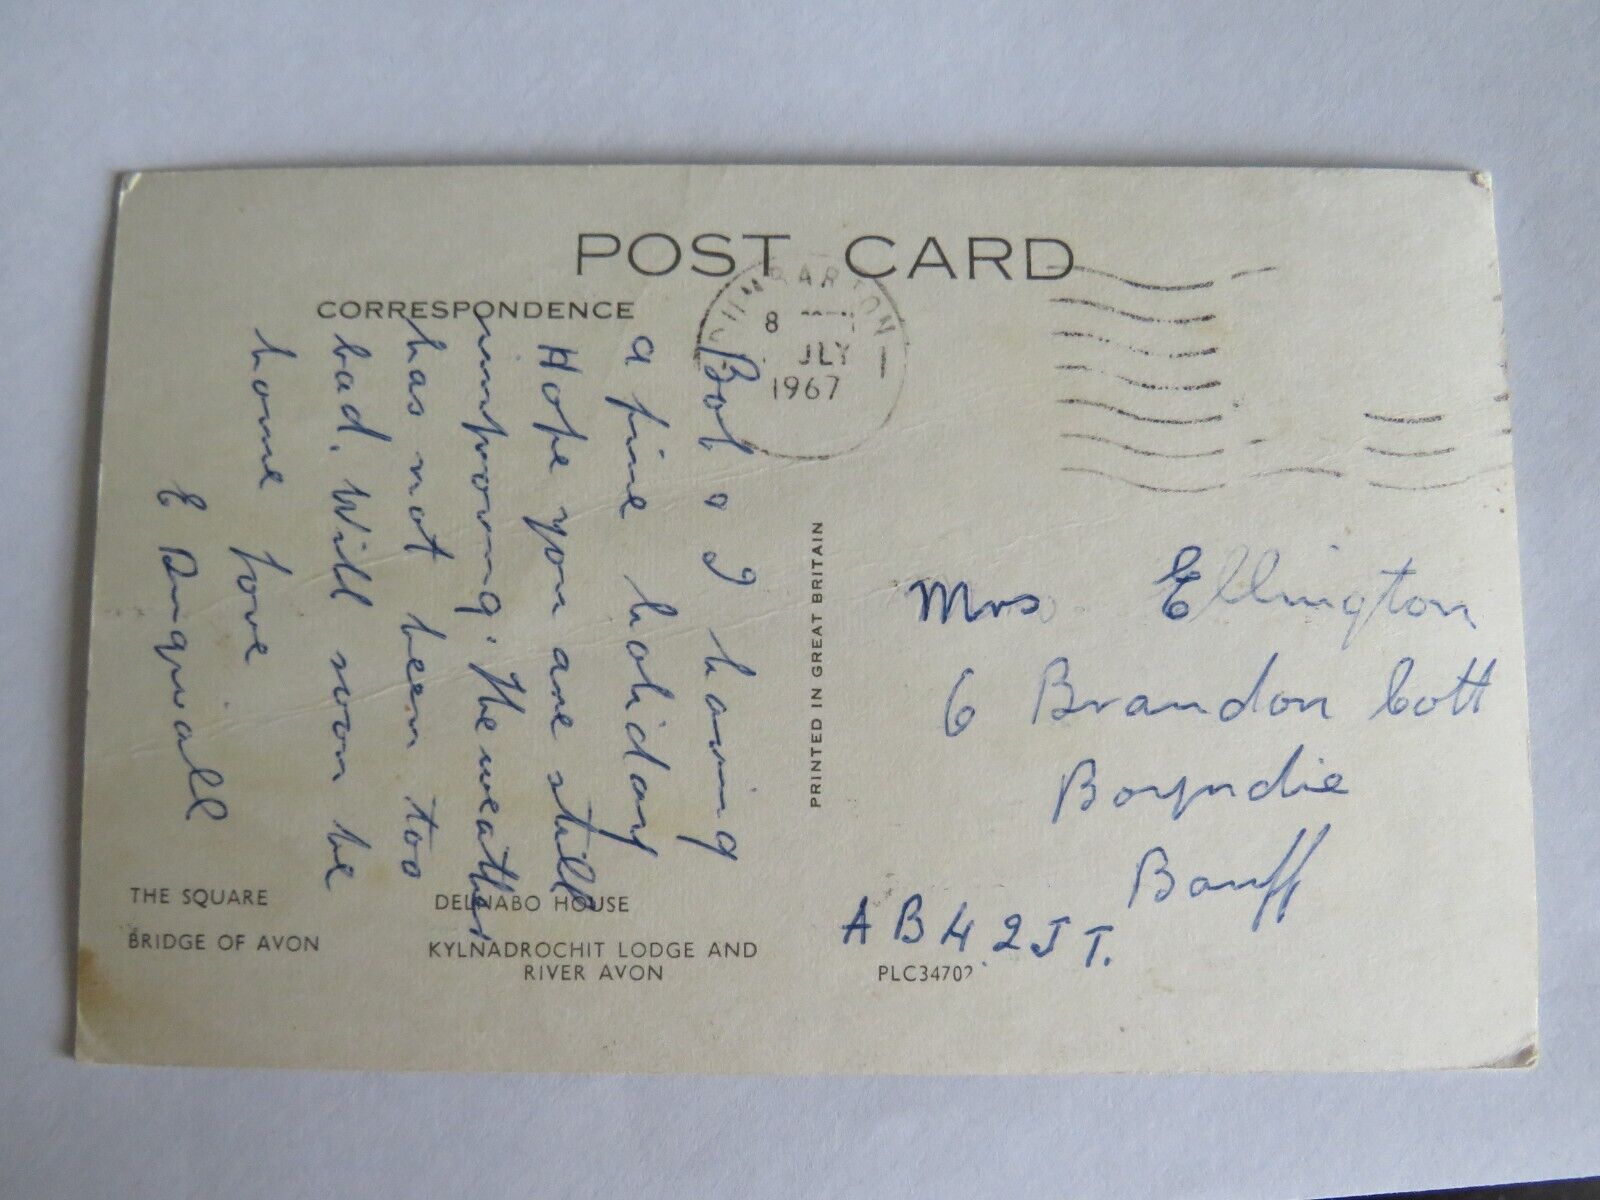 POST CARD
CORRESPONDENCE
DUMBARTON
8
JLY
1967
Bob & I having
a fine holiday
Hope you are still
improving. The weather
has not been too
bad. Will soon be
home love
E
PRINTED IN GREAT BRITAIN
Mrs Ellington
6 Brandon Cott
Boyndie
Banff
AB4 2JT.
THE SQUARE
DELNABO HOUSE
BRIDGE OF AVON
KYLNADROCHIT LODGE AND
RIVER AVON
PLC34702